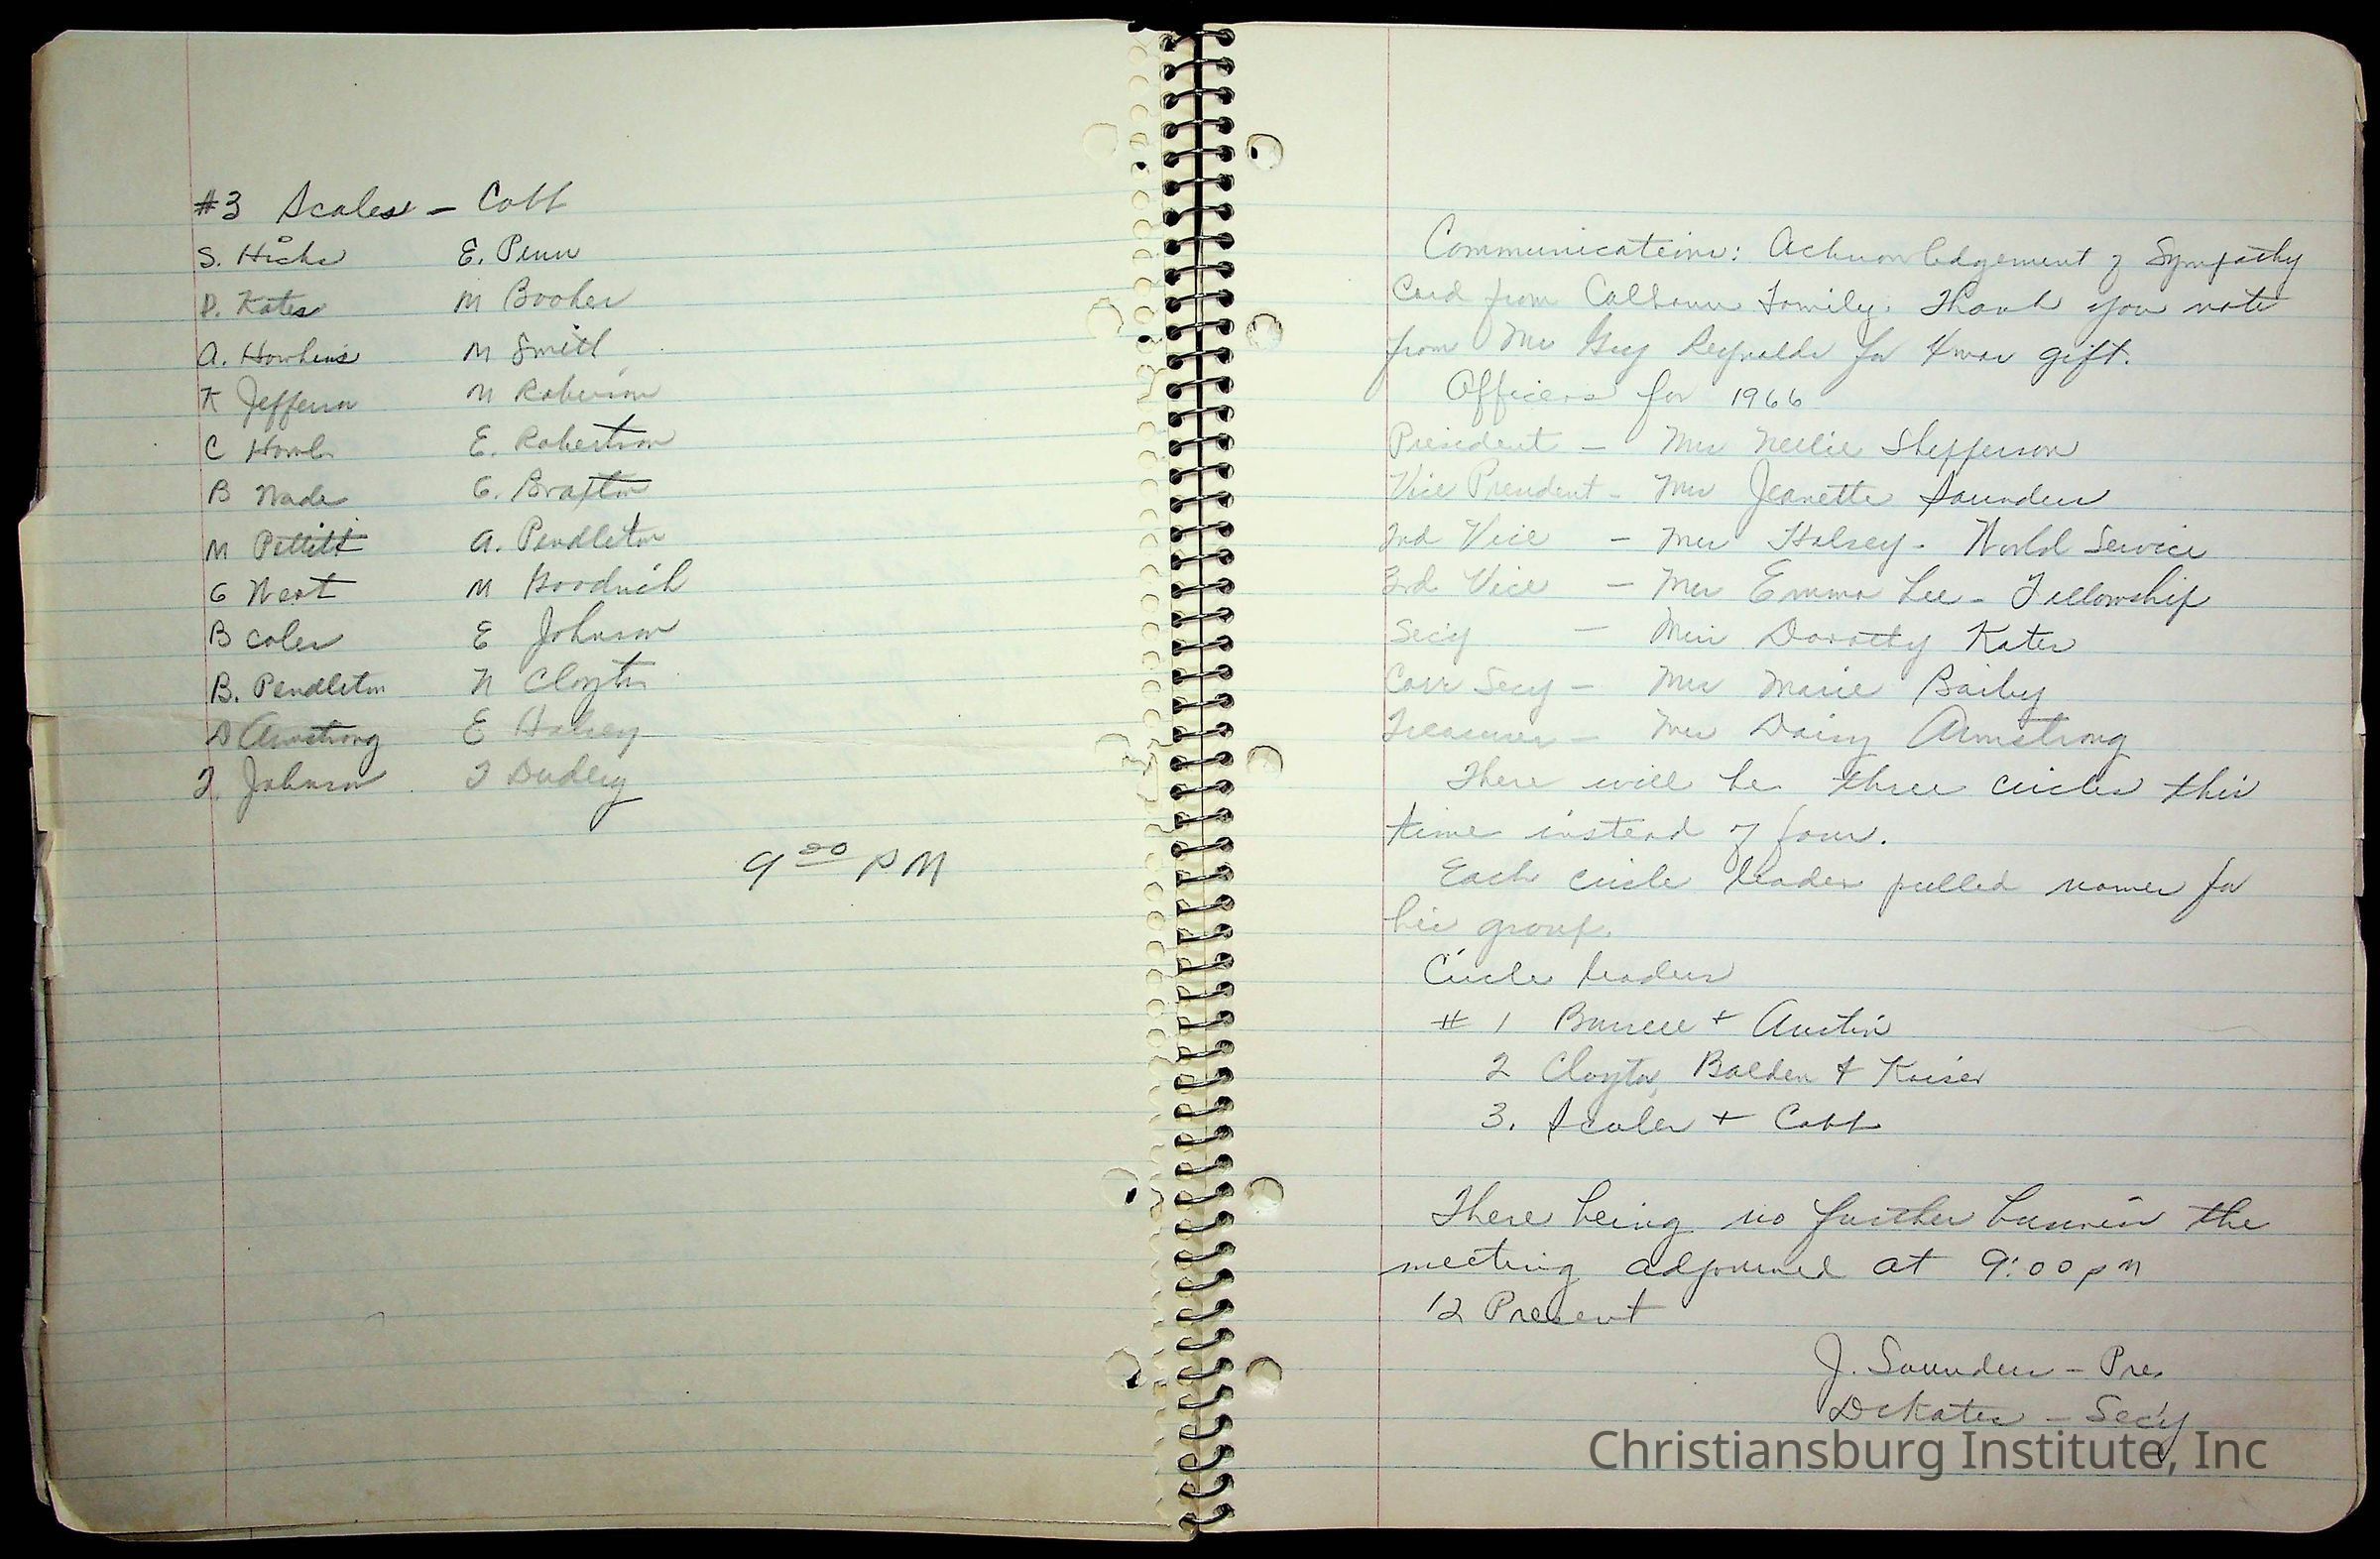 #3 Scales - Cobb
S. Hicks E. Penn
D. Kates M Booker
A. Hawkins M Smith
K Jefferson N Roberson
C Hawk E. Robertson
B Wade G. Braxton
M Pettitt A. Pendleton
G West M Goodrich
B Coles E Johnson
B. Pendleton N Clayton
D Armstrong E Halsey
T. Johnson T Dudley
9 00 PM
Communications: Acknowledgement of Sympathy
Card from Calhoun Family. Thank you note
from Mr Guy Reynolds for Xmas gift.
Officers for 1966
President - Mrs Nellie Shepperson
Vice President - Mrs Jeanette Saunders
2nd Vice - Mrs Halsey - World Service
3rd Vice - Mrs Emma Lee - Fellowship
Secy - Miss Dorothy Kates
Corr Secy - Mrs Marie Baily
Treasurer - Mrs Daisy Armstrong
There will be three circles this
time instead of four.
Each circle leader pulled names for
his group.
Circle leaders
# 1 Burrell + Austin
2 Clayton, Balden + Kaiser
3. Scales + Cobb
There being no further business the
meeting adjourned at 9:00 pm
12 Present
J. Saunders - Pres
D Kates - Sec'y
Christiansburg Institute, Inc